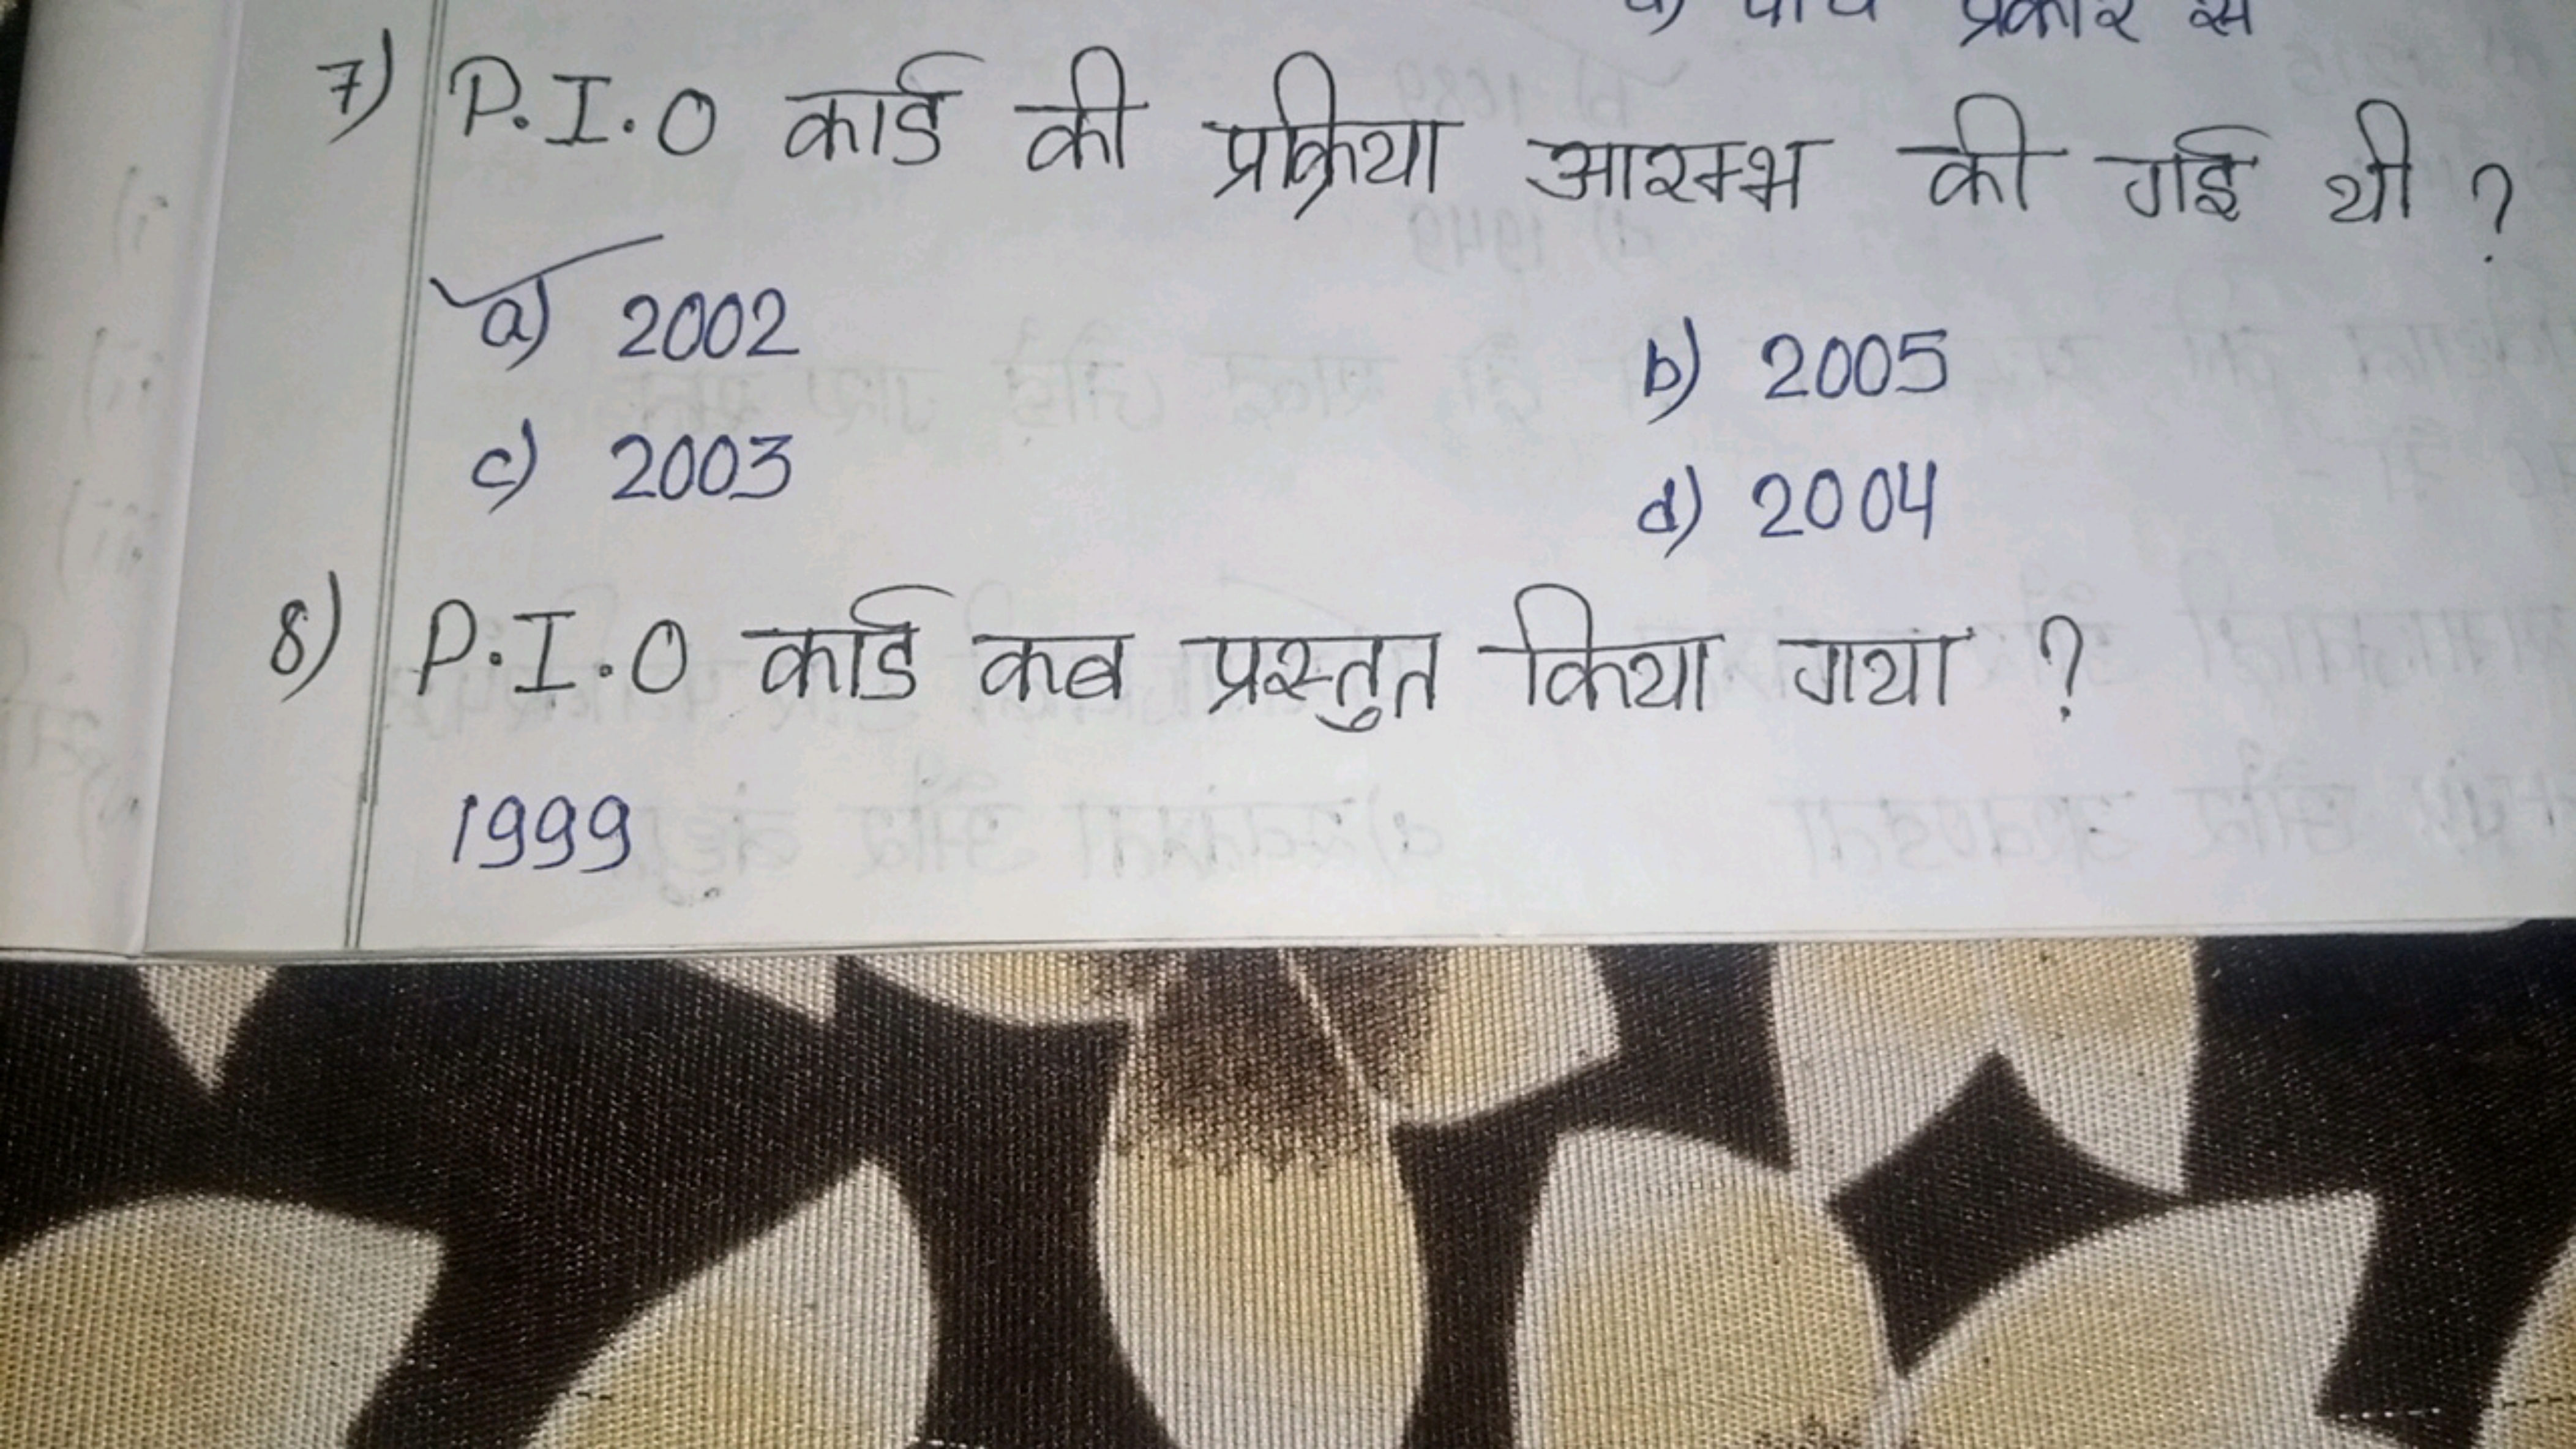 प्रकार से
7) P.I.O कार्ड की प्रक्रिया आरम्भ की गई थी ?
a) 2002
b) 2005
c) 2003
d) 2004
8) P.I.O कार्ड कब प्रस्तुत किया गया ?
1999